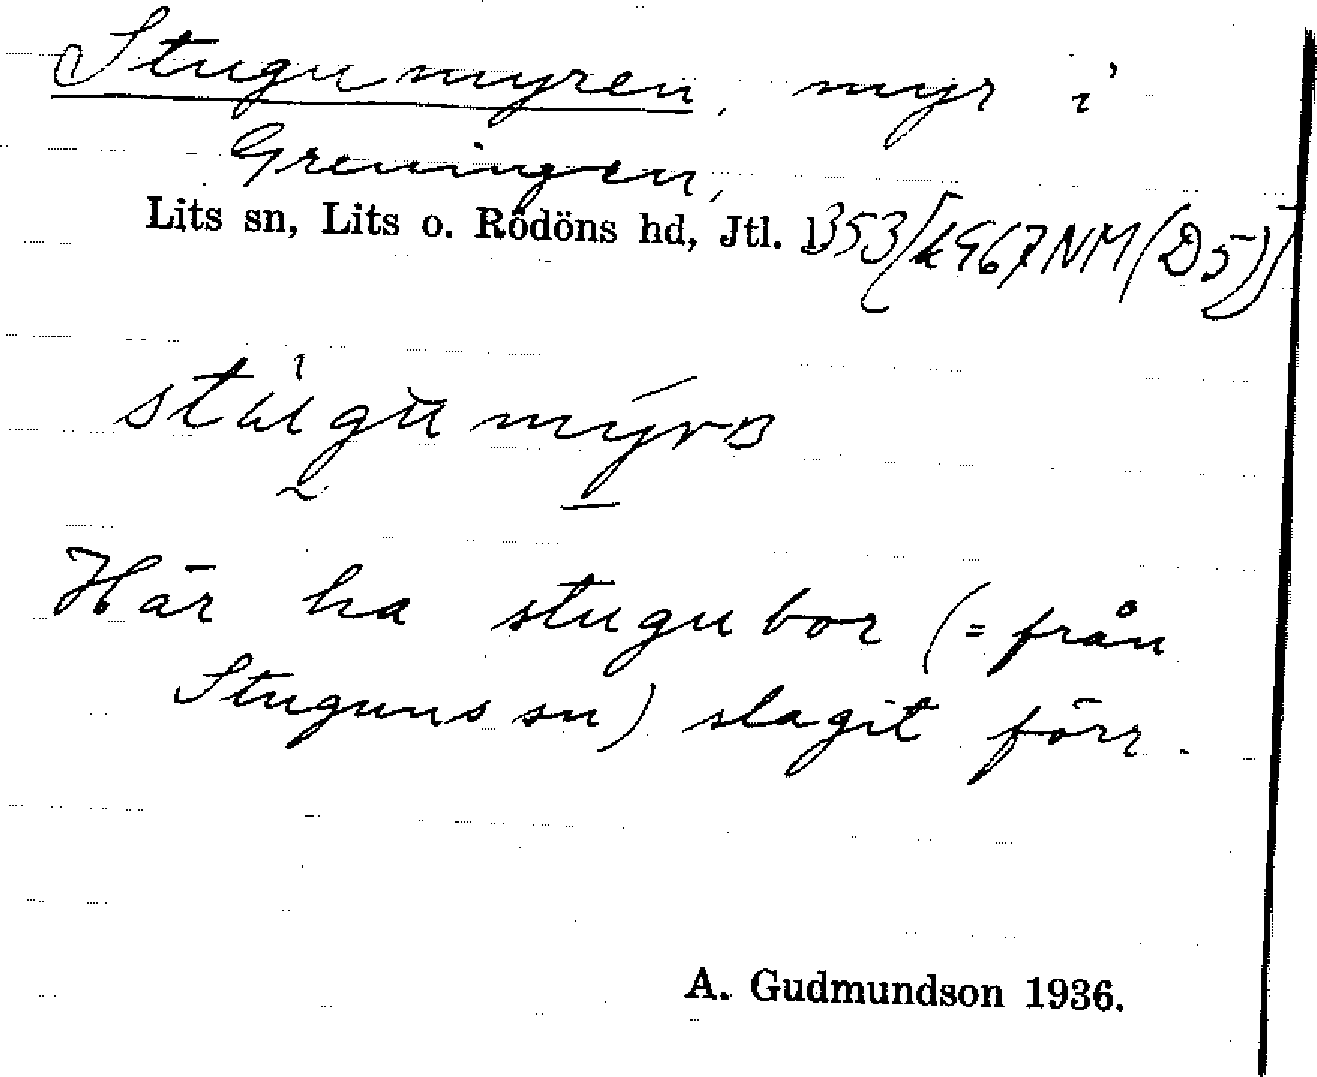 Stugumyren, myr i
Greningen,
Lits sn, Lits o. Rödöns hd, Jtl.
Här ha stugubor (= från
Stuguns sn) slagit förr.
A. Gudmundson 1936.